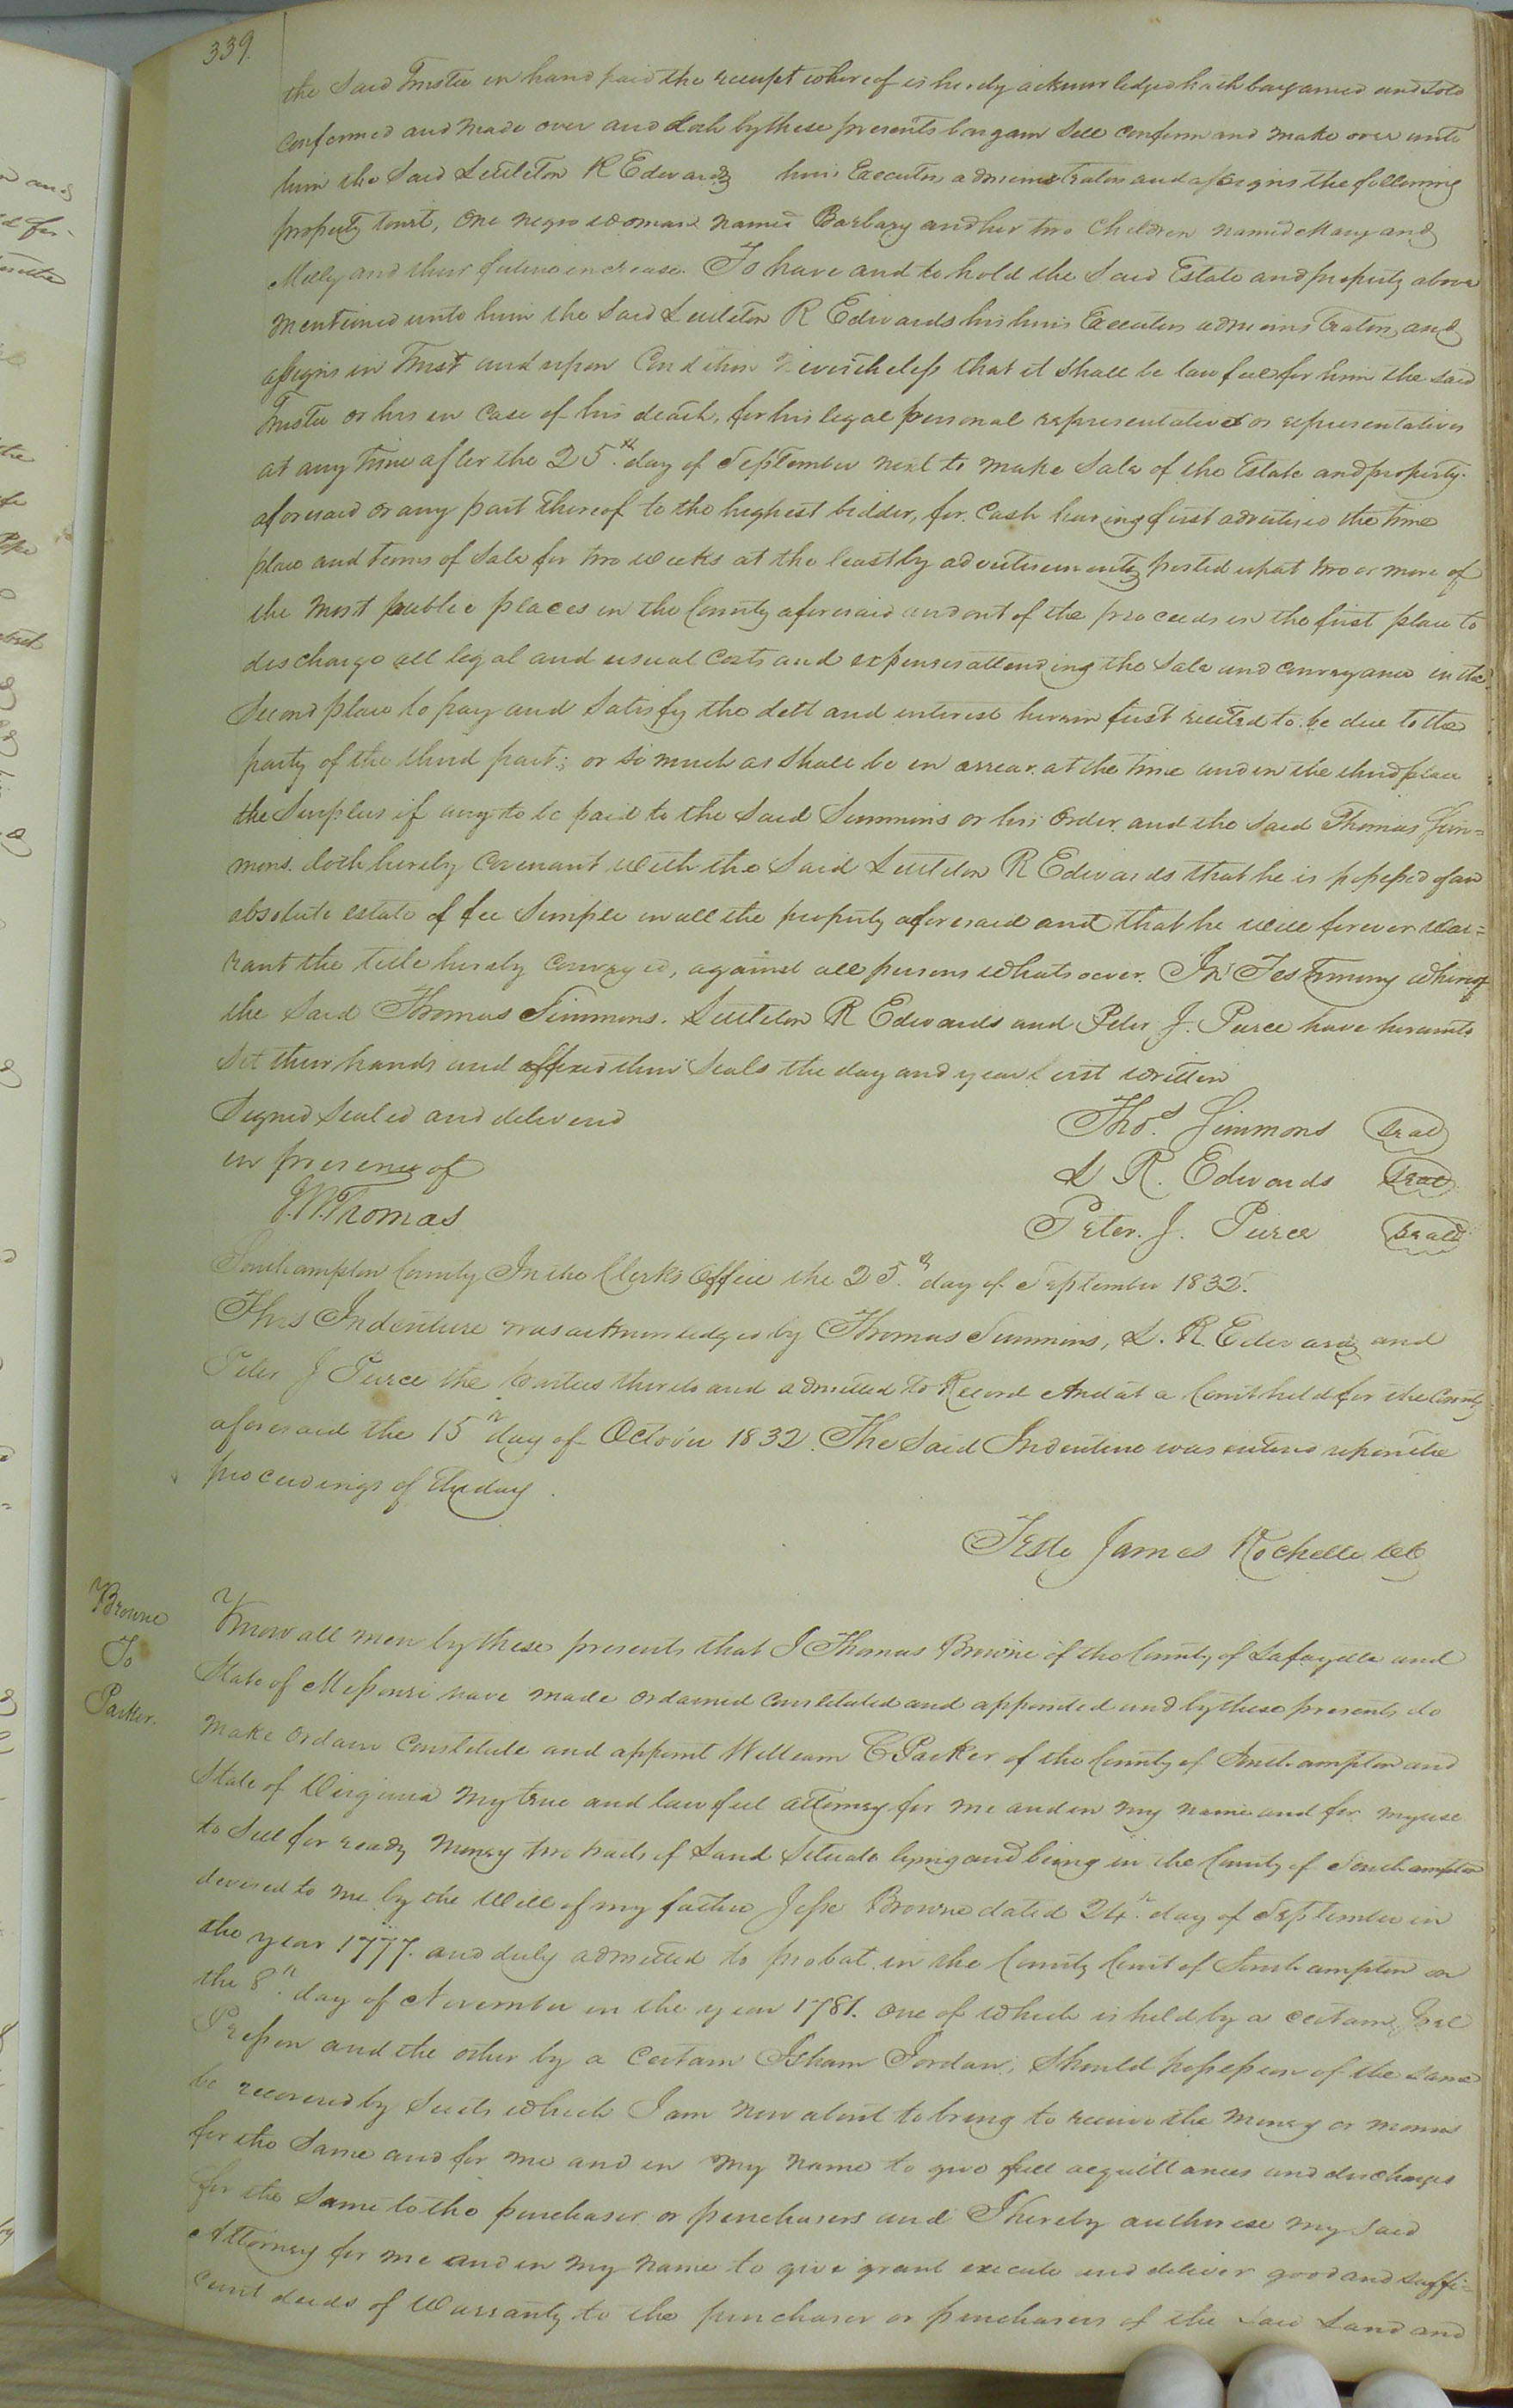 339.
the Said Trustee in hand paid the receipt whereof is hereby acknowledged hath bargained and sold
confirmed and made over and doth by these presents bargain Sell confirm and make over unto
him the Said Littleton R Edwards his Executors administrators and assigns the following
property towit, One negro woman named Barbary and her two Children named Mary and
Milly and their future increase. To have and to hold the Said Estate and property above
mentioned unto him the Said Littleton R Edwards his heirs Executors administrators, and
assigns in Trust and upon Condition Nevertheless that it shall be lawful for him the said
Trustee or his in Case of his death, for his legal personal representatives or representatives
at any time after the 25th. day of September next to make Sale of the Estate and property.
aforesaid or any part thereof to the highest bidder, for Cash having first advertised the time
place and terms of Sale for two weeks at the least by advertisements posted up at two or more of
the most public places in the County aforesaid and out of the proceeds in the first place to
discharge all legal and usual Costs and expenses attending the Sale and conveyance in the
Second place to pay and Satisfy the debt and interest herein first recited to be due to the
party of the third part; or so much as Shall be in arrear at the time and in the third place
the Surplus if any to be paid to the Said Simmons or his Order and the Said Thomas Sim=
mons. doth hereby Covenant with the Said Littleton R Edwards that he is possessed of an
absolute estate of fee Simple in all the property aforesaid and that he will forever War=
rant the title hereby Conveyed, against all persons whatsoever. In Testimony whereof
the Said Thomas Simmons. Littleton R Edwards and Peter J. Peirce have hereunto
Set their hands and affixed their Seals the day and year first written
Signed Sealed and delivered
in presence of
J.W. Thomas
Thos. Simmons Seal
L R. Edwards Seal
Peter. J. Peirce Seal
Southampton County In the Clerks Office the 25.th day of September 1832.
This Indenture was acknowledged by Thomas Simmons, L. R. Edwards and
Peter J Peirce the parties thereto and admitted to Record And at a Court held for the County
aforesaid the 15th day of October 1832. The Said Indenture was entered upon the
proceedings of the day.
Teste James Rochelle CC
Browne
To
Parker.
Know all men by these presents that I Thomas Browne of the County of Lafayette and
State of Missouri have made ordained constituted and appointed and by these presents do
make Ordain Constitute and appoint William C Parker of the County of Southampton and
State of Virginia my true and lawful attorney for me and in my name and for my use
to Sell for ready Money two tracts of Land Situate lying and being in the County of Southampton
devised to me by the Will of my father Jesse Browne dated 24th. day of September in
the year 1777. and duly admitted to probat in the County Court of Southampton on
the 8th. day of November in the year 1781. one of which is held by a certain Joel
Presson and the other by a Certain Isham Jordan, Should possession of the same
be recovered by Suits which I am now about to bring to receive the money or monies
for the Same and for me and in my name to give full acquittances and discharges
for the Same to the purchaser or purchasers and I hereby authorise my said
Attorney for me and in my name to give grant execute and deliver good and suffi=
cient deeds of Warranty to the purchaser or purchasers of the Said Land and